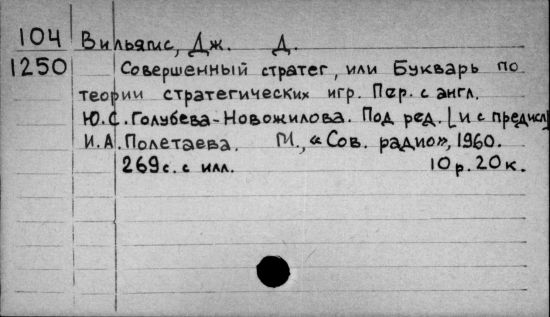 104 Вильямс, Дж. Д.
1250 Совершенный стратег, или Букварь по
теории стратегических игр. Пер. с англ.
Ю.С. Голубева-Новожилова. Под ред. [и с предисл]
И.А. Полетаева. М., «Сов. радио», 1960.
269 с. с илл. 10 р. 20 к.